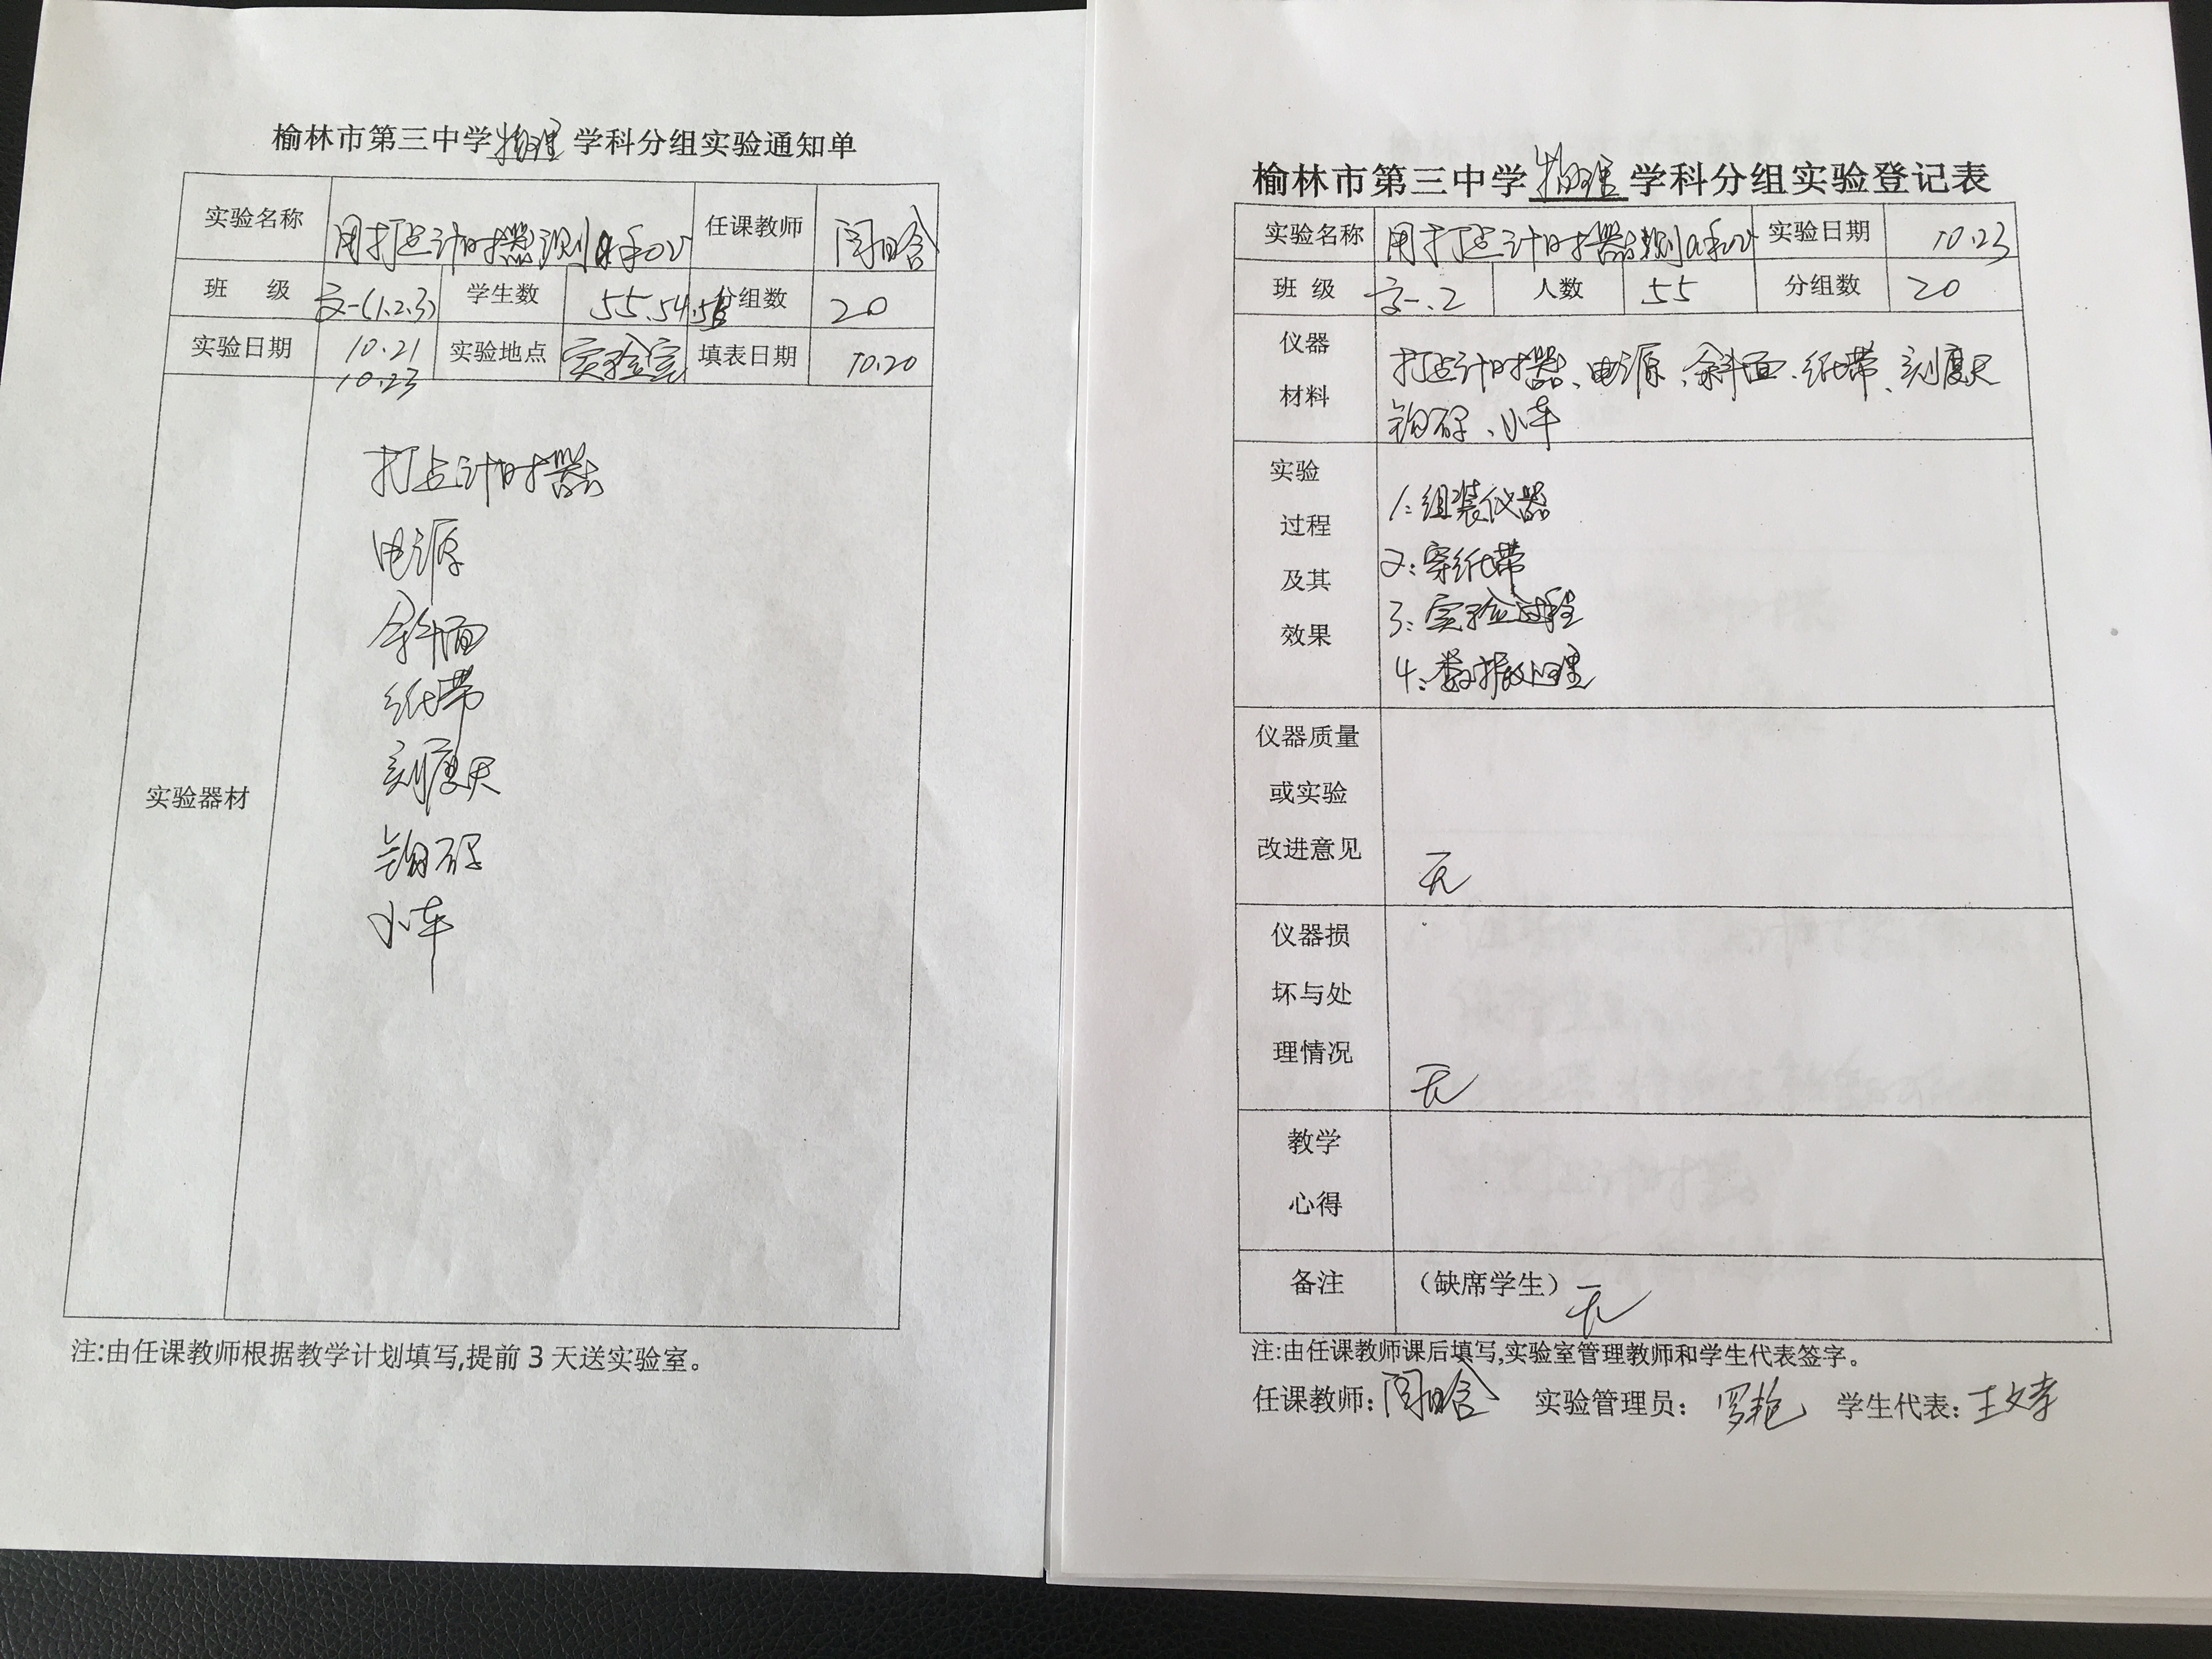 榆林市第三中学物理学科分组实验通知单
实验名称 用打点计时器测a和v 任课教师 闫晗
班 级 高一(1.2.3) 学生数 55.54.53 分组数 20
实验日期 10.21 10.23 实验地点 实验室 填表日期 10.20
实验器材
打点计时器
电源
斜面
纸带
刻度尺
钩码
小车
注:由任课教师根据教学计划填写,提前3天送实验室。
榆林市第三中学物理学科分组实验登记表
实验名称 用打点计时器测a和v 实验日期 10.23
班 级 高一.2 人数 55 分组数 20
仪器材料 打点计时器、电源、斜面、纸带、刻度尺
钩码、小车
实验过程及其效果
1:组装仪器
2:穿纸带
3:实验过程
4:数据处理
仪器质量或实验改进意见 无
仪器损坏与处理情况 无
教学心得
备注 (缺席学生) 无
注:由任课教师课后填写,实验室管理教师和学生代表签字。
任课教师:闫晗 实验管理员:罗艳 学生代表: